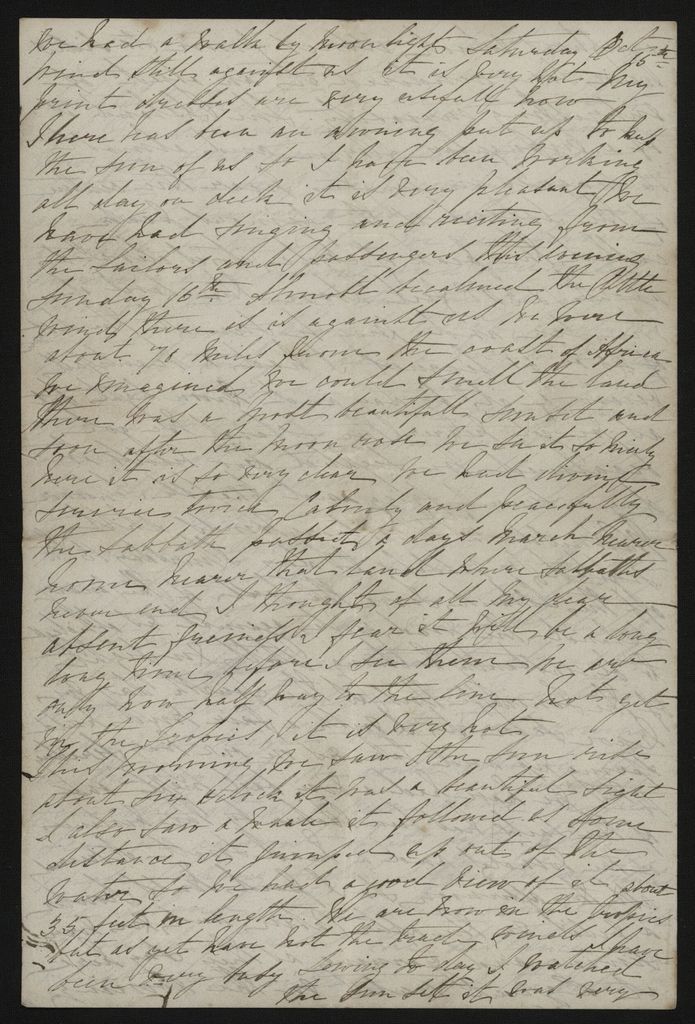 we had a walk by moonlight Saturday Oct 15th
wind still against us it is very hot My
print dresses are very usefull now
There has been an awning put up to keep
the sun of us so I have been working
all day on deck it is very pleasant We
have had singing and reciting from
the sailors and passengers this evening
Sunday 16th Almost becalmed the little
wind there is is against us We were
about 70 miles from the coast of Africa
We imagined we could smell the land
there was a most beautifull sunset and
soon after the moon rose We see it so nicely
here it is so very clear We had divine
service twice Calmly and peacefully
the Sabbath passed a days march nearer
home nearer that land where Sabbaths
never end I thought of all my dear
absent friends I fear it will be a long
long time before I see them We are
now half way to the line Not yet
in the tropics it is very hot
This morning We saw the sun rise
about six oclock it was a beautiful sight
I also saw a whale it followed us some
distance it jumped up out of the
water so we had a good view of it about
35 feet in length We are now in the tropics
but as yet have not the trade winds I have
been very busy sewing to day I watched
the sun set it was very